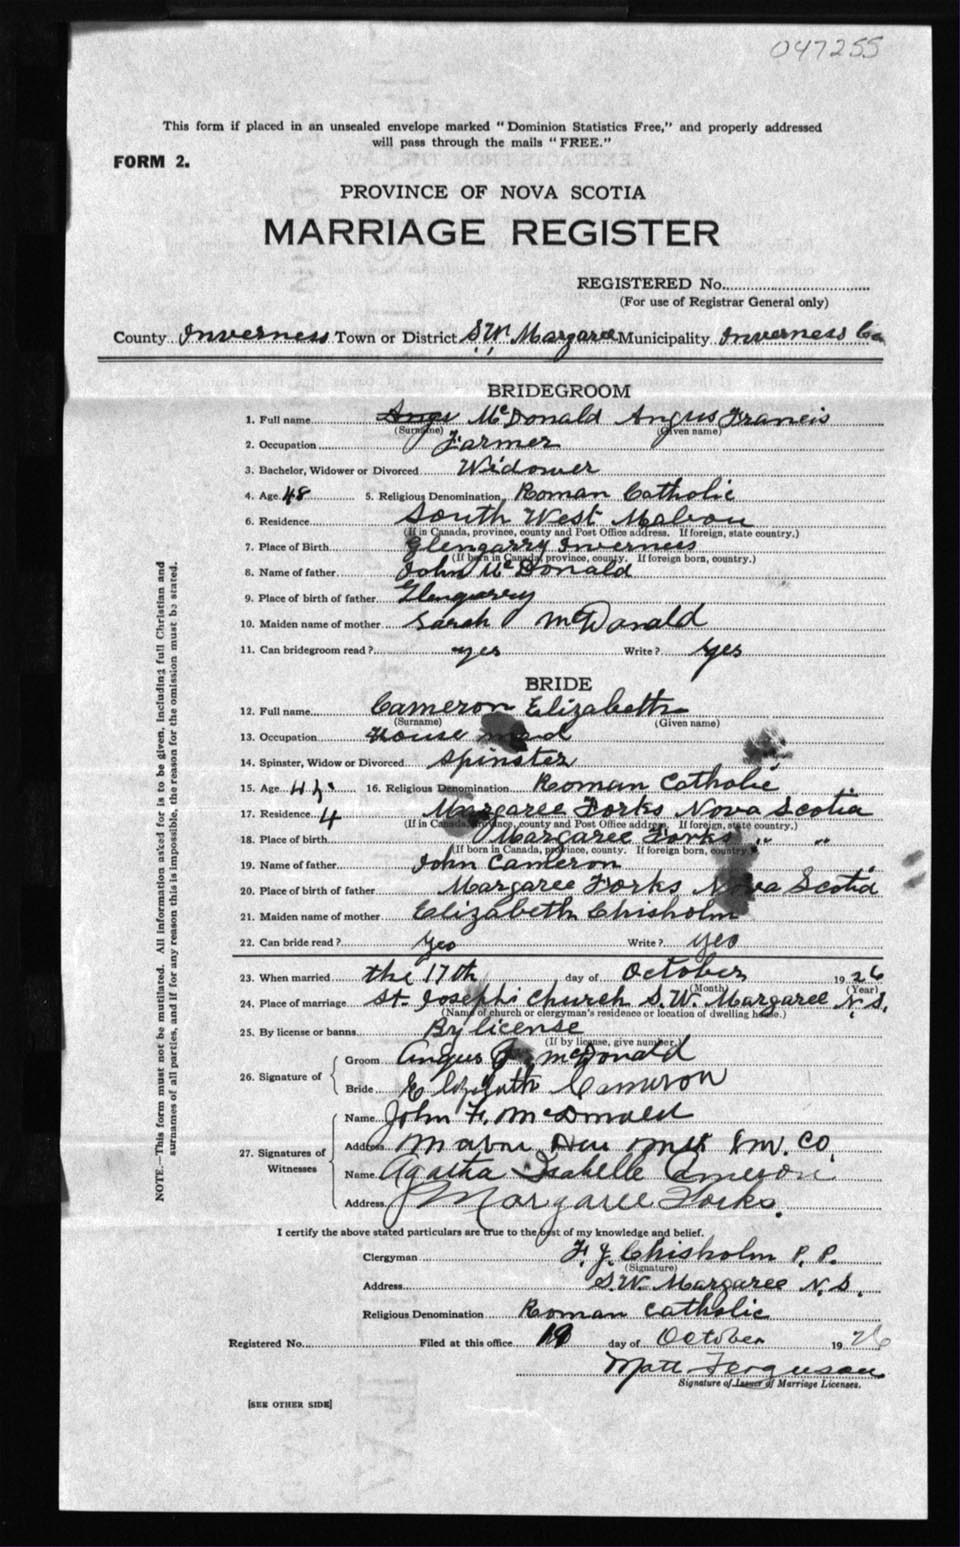 047255
This form if placed in an unsealed envelope marked "Dominion Statistics Free," and properly addressed
will pass through the mails "FREE."
FORM 2.
PROVINCE OF NOVA SCOTIA
MARRIAGE REGISTER
REGISTERED No.
(For use of Registrar General only)
County Inverness Town or District S.W. Margaree Municipality Inverness Co
BRIDEGROOM
1. Full name Angu McDonald Angus Francis
(Surname) (Given name)
2. Occupation Farmer
3. Bachelor, Widower or Divorced Widower
4. Age 48 5. Religious Denomination Roman Catholic
6. Residence South West Mabou
(If in Canada, province, county and Post Office address. If foreign, state country.)
7. Place of Birth Glengarry Inverness
(If born in Canada, province, county. If foreign born, country.)
8. Name of father John McDonald
9. Place of birth of father Glengarry
10. Maiden name of mother Sarah McDonald
11. Can bridegroom read? yes Write? yes
BRIDE
12. Full name Cameron Elizabeth
(Surname) (Given name)
13. Occupation House maid
14. Spinster, Widow or Divorced Spinster
15. Age 16. Religious Denomination Roman Catholic
17. Residence Margaree Forks Nova Scotia
(If in Canada, province, county and Post Office address. If foreign, state country.)
18. Place of birth Margaree Forks " "
(If born in Canada, province, county. If foreign born, country.)
19. Name of father John Cameron
20. Place of birth of father Margaree Forks Nova Scotia
21. Maiden name of mother Elizabeth Chisholm
22. Can bride read? yes Write? yes
23. When married the 17th day of October 1926
(Month) (Year)
24. Place of marriage St. Joseph's Church S.W. Margaree N.S.
(Name of church or clergyman's residence or location of dwelling house.)
25. By license or banns By license
(If by license, give number.)
26. Signature of
Groom Angus F McDonald
Bride Elizabeth Cameron
27. Signatures of Witnesses
Name John F. McDonald
Address Mabou Co.
Name Agatha Isabelle Cameron
Address Margaree Forks.
I certify the above stated particulars are true to the best of my knowledge and belief.
Clergyman F. J. Chisholm P. P.
(Signature)
Address S.W. Margaree N.S.
Religious Denomination Roman Catholic
Registered No. Filed at this office 19 day of October 1926
Matt Ferguson
Signature of Issuer of Marriage Licenses.
[SEE OTHER SIDE]
NOTE.—This form must not be mutilated. All information asked for is to be given, including full Christian and
surnames of all parties, and if for any reason this is impossible, the reason for the omission must be stated.